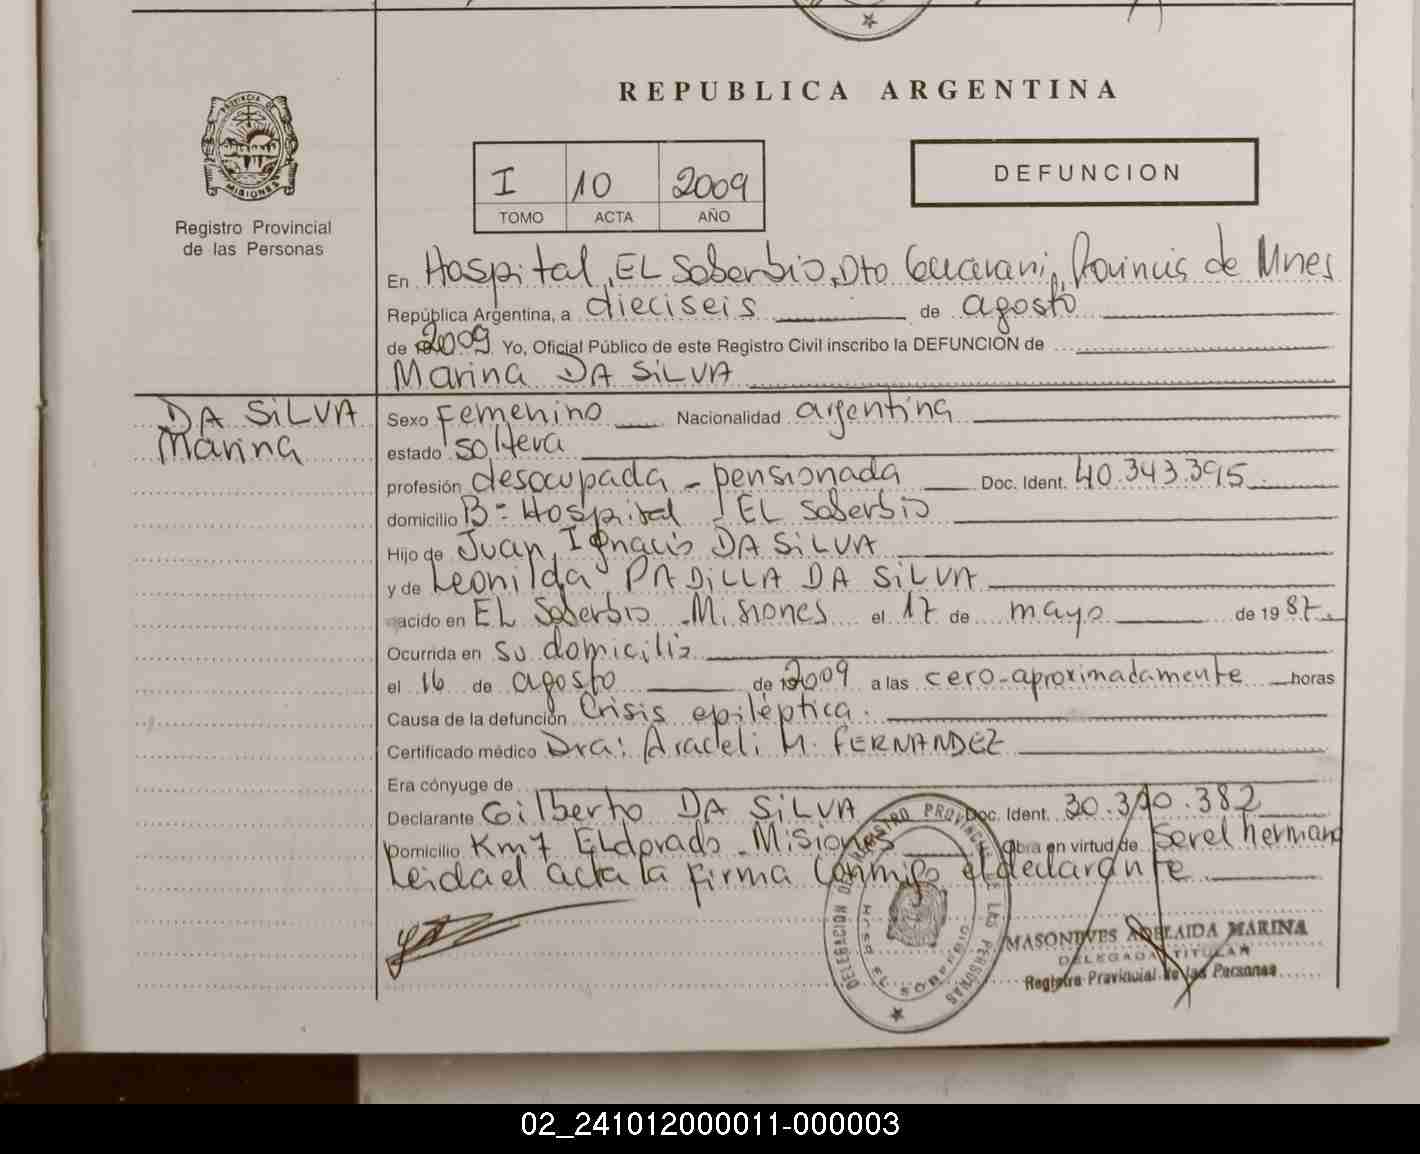 REPUBLICA ARGENTINA
PROVINCIA DE MISIONES
Registro Provincial
de las Personas
I 10 2009
TOMO ACTA AÑO
DEFUNCION
En Hospital, EL Soberbio, Dto Guarani, Provincia de Mnes
República Argentina, a dieciseis de agosto
de 2009 Yo, Oficial Público de este Registro Civil inscribo la DEFUNCION de
Marina DA SiLVA
DA SiLVA
Marina
Sexo femenino Nacionalidad argentina
estado soltera
profesión desocupada - pensionada Doc. Ident. 40.343.395
domicilio B= Hospital EL Soberbio
Hijo de Juan Ignacio DA SiLVA
y de Leonilda PADiLLA DA SiLVA
nacido en EL Soberbio - Misiones el 17 de mayo de 1987.
Ocurrida en su domicilio
el 16 de agosto de 2009 a las cero-aproximadamente horas
Causa de la defunción Crisis epiléptica.
Certificado médico Dra: Araceli M. FERNANDEZ
Era cónyuge de
Declarante Gilberto DA SiLVA Doc. Ident. 30.310.382
Domicilio Km7 ELdorado - Misiones Obra en virtud de Ser el hermano
Leida el acta la firma Conmigo el declarante
DELEGACION DEL REGISTRO PROVINCIAL DE LAS PERSONAS
EL SOBERBIO
ADELAIDA MARINA
DELEGADA TITULAR
Registro Provincial de las Personas
02_241012000011-000003